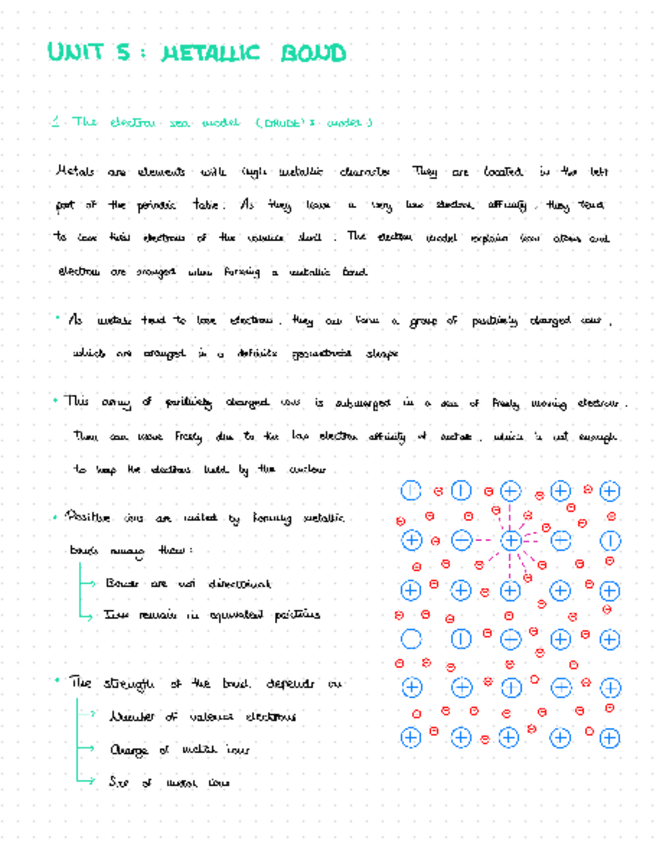 UNIT 5: METALLIC BOND
1. The electron sea model (DRUDE's model)
Metals are elements with high metallic character. They are located in the left
part of the periodic table. As they have a very low electron affinity, they tend
to lose their electrons of the valence shell. The electron model explains how atoms and
electrons are arranged when forming a metallic bond
As metals tend to lose electrons, they form a group of positively charged ions,
which are arranged in a definite geometrical shape
This array of positively charged ions is submerged in a sea of freely moving electrons.
They can move freely due to the low electron affinity of metals, which is not enough
to keep the electrons held by the nucleus.
Positive ions are united by forming metallic
bonds among them:
Bonds are not directional
Ions remain in equivalent positions
The strength of the bond depends on
Number of valence electrons
Charge of metal ions
Size of metal ions